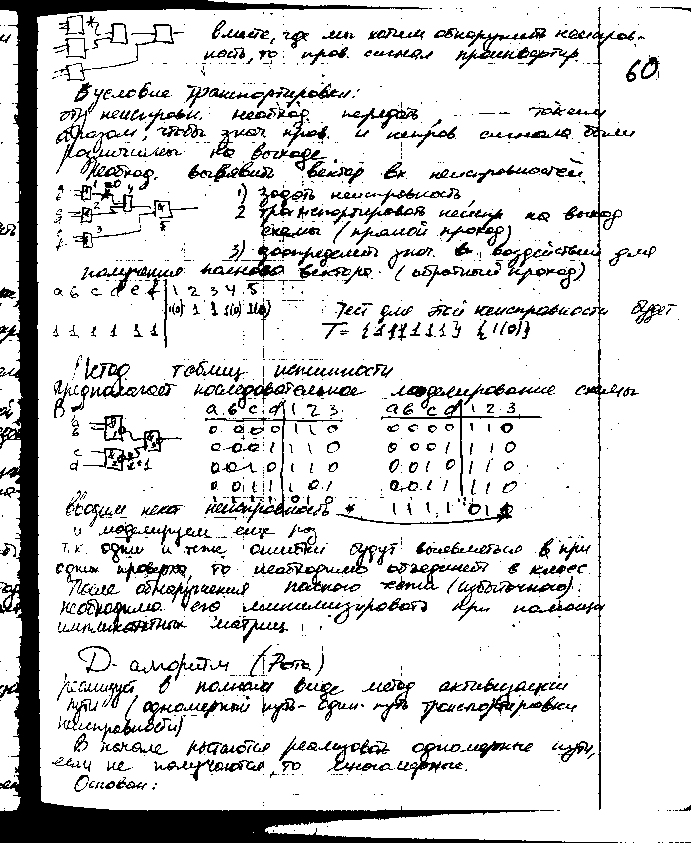 вместе, где мы хотим обнаружить неисправ-
ность, то прав. сигнал проинвертир
60
В условие транспортировки:
неисправн. необход передать токим
образом, чтобы знач прав. и неправ сигнала были
различимы на выходе
Необход. выявить вектор вх неисправностей.
1) задать неисправность
2 транспортировать неиспр на выход
схемы (прямой проход)
3) доопределить знач. воздействий для
получения полного вектора. (обратный проход)
a b c d e f 1 2 3 4 5
1(0) 1 1 1(0) 1(0)
1 1 1 1 1 1
Тест для этой неисправности будет
T = {111111} {1(0)}
Метод таблиц истинности
Предполагает последовательное моделирование схемы
a b c d 1 2 3 a b c d 1 2 3
0 0 0 0 1 1 0 0 0 0 0 1 1 0
0 0 0 1 1 1 0 0 0 0 1 1 1 0
0 0 1 0 1 1 0 0 0 1 0 1 1 0
0 0 1 1 1 0 1 0 0 1 1 1 1 0
Вводим некот неисправность * 1 1 1 1 0 1 0
и моделируем еще раз
т.к. одни и теже ошибки будут выявляться при
одних проверка, то необходимо объединять в класс
После обнаружения полного (избыточного)
необходимо его минимизировать при помощи
импликантных матриц.
D- алгоритм (Рота)
реализует в полном виде метод активизации
пути (одномерный путь- один путь транспортировки
неисправности)
В начале пытаются реализовать одномерные пути,
если не получаются, то многомерные.
Основан: